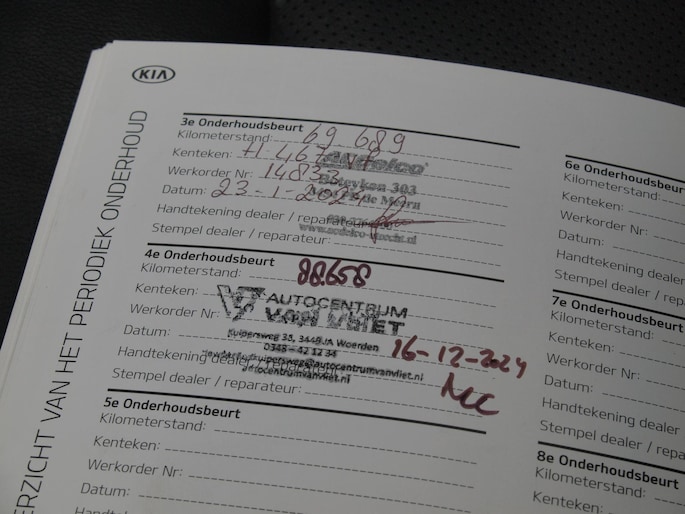 KIA
OVERZICHT VAN HET PERIODIEK ONDERHOUD
3e Onderhoudsbeurt
Kilometerstand: 69 689
Kenteken:
Werkorder Nr: 14833
Datum: 23-1-2024
Handtekening dealer / reparateur:
Stempel dealer / reparateur:
303
4e Onderhoudsbeurt
Kilometerstand: 88658
Kenteken:
Werkorder Nr:
Datum: 16-12-2024
Handtekening dealer / reparateur:
Stempel dealer / reparateur:
AUTOCENTRUM
VAN VLIET
Kuipersweg 35, 3449JA Woerden
0348-42 12 34
autocentrumvanvliet.nl
5e Onderhoudsbeurt
Kilometerstand:
Kenteken:
Werkorder Nr:
Datum:
6e Onderhoudsbeurt
Kilometerstand:
Kenteken:
Werkorder Nr:
Datum:
Handtekening dealer
Stempel dealer / repa
7e Onderhoudsbeurt
Kilometerstand:
Kenteken:
Werkorder Nr:
Datum:
Handtekening dealer
Stempel dealer / repa
8e Onderhoudsbeurt
Kilometerstand:
Kenteken: